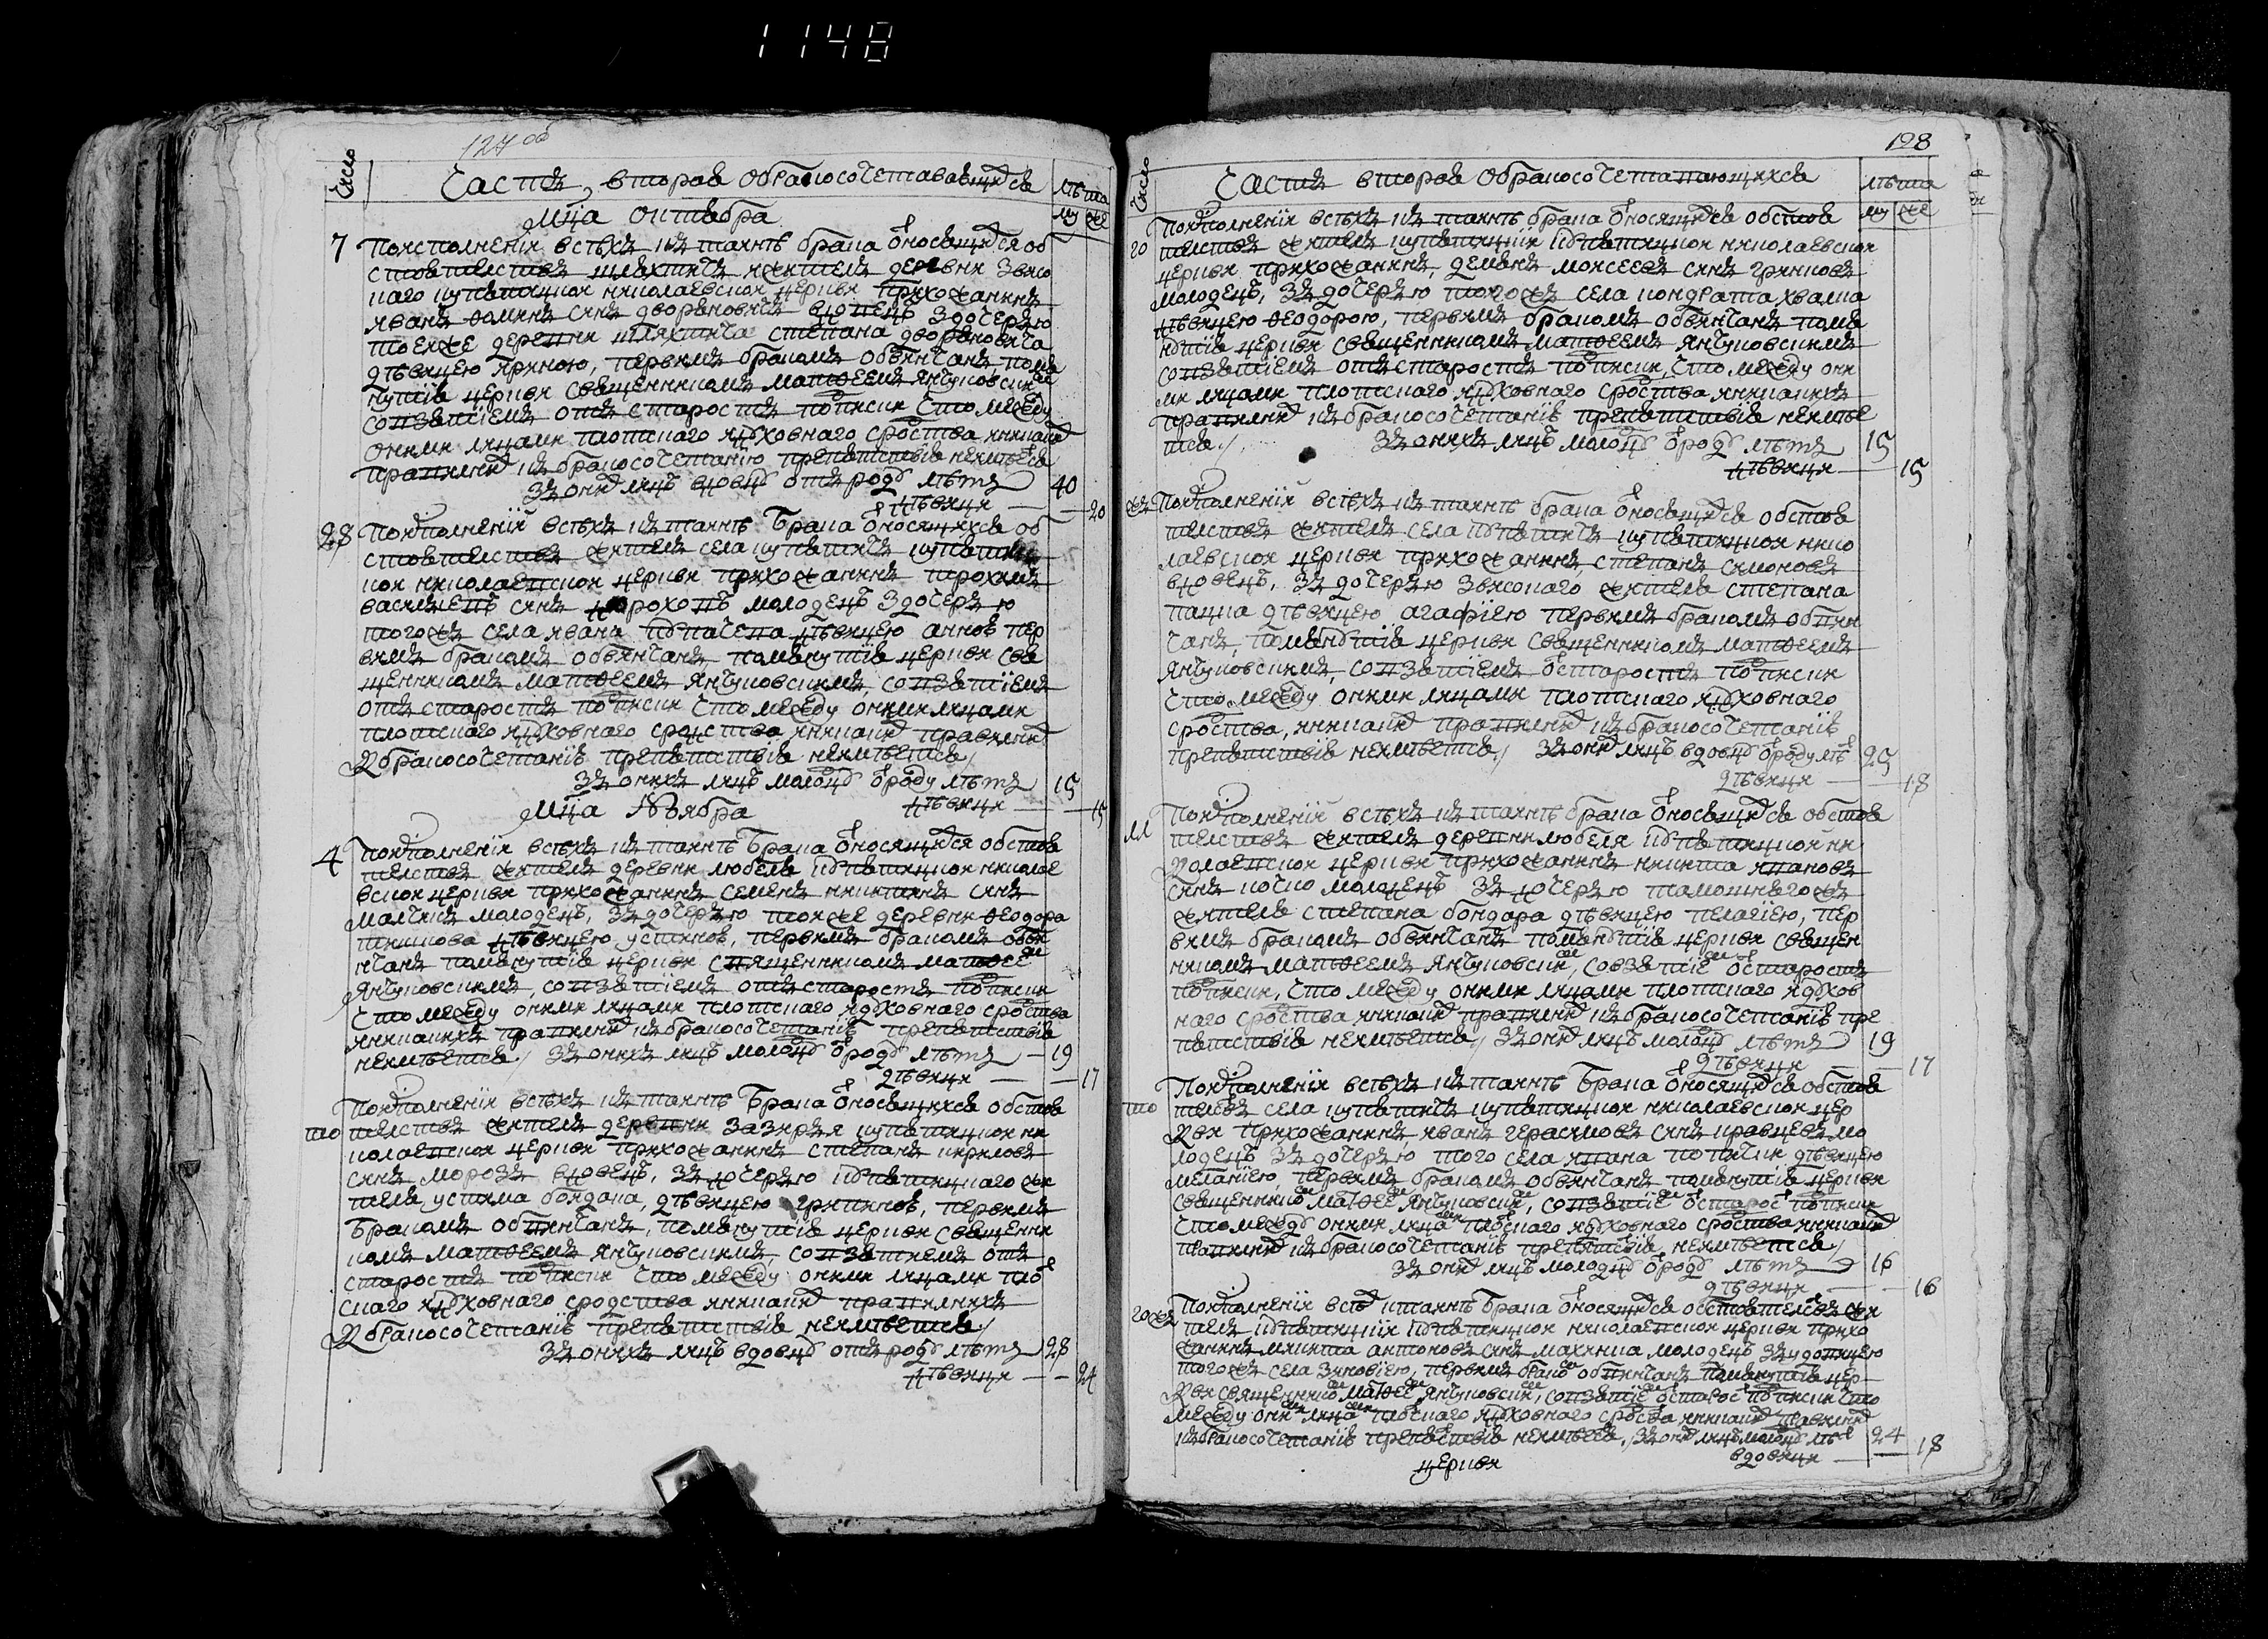 1148
127 об
Число
Часть вторая о бракосочетавающихся
лѣта
му же
Мца октября
7
По исполненіи всѣхъ къ таинѣ брака относящихся об
стоятельствъ шляхтичь и житель деревни Звясо
наго купятицкои николаевскои церкви прихожанинъ
иванъ ѳоминъ синъ двораковичъ вдовецъ з дочерю
тоеиже деревни шляхтича степана двораковича
дѣвицею ириною, первимъ бракомъ обвинчанъ помя
нутія церкви священникомъ матѳеемъ янчуковским
со взятіемъ отъ старостъ подписки что между
оними лицами плотскаго и духовнаго сродства и никаких
правилних къ бракосочетанію препятствія неимѣется
зъ оних лицъ вдовцу отъ роду лѣтъ 40
дѣвици — 20
28
По исполненіи всѣхъ къ таинѣ брака относящихся об
стоятельствъ житель села купятичъ купятиц
кои николаевскои церкви прихожанинъ трохимъ
василіевъ синъ молодецъ з дочерю
тогожъ села ивана дѣвицею анною пер
вимъ бракомъ обвинчанъ, помянутія церкви свя
щенникомъ матѳеемъ янчуковскимъ, со взятіемъ
отъ старостъ подписки что между оними лицами
плотскаго и духовнаго сродства и никаких правилних
к бракосочетанію препятствія неимѣется
зъ онихъ лицъ молодцу отроду лѣтъ 15
дѣвици — 15
Мца Ноября
4
По исполненіи всѣхъ къ таинѣ брака относящихся обстоя
тельствъ житель деревни любеля купятицкои николае
вскои церкви прихожанинъ семенъ никитинъ синъ
малчикъ молодецъ, зъ дочерю тоиже деревни ѳеодора
дѣвицею устиною, первимъ бракомъ обви
нчанъ помянутія церкви священникомъ матѳее
янчуковскимъ, со взятіемъ отъ старостъ подписки
что между оними лицами плотскаго и духовнаго сродства
и никакихъ правилних къ бракосочетанію препятствія
неимѣется зъ онихъ лицъ молодцу отроду лѣтъ — 19
дѣвици — 17
то
По исполненіи всѣхъ къ таинѣ брака относящихся обстоя
тельствъ житель деревни зазиря купятицкои ни
колаевскои церкви прихожанинъ степанъ кириловъ
синъ морозъ вдовецъ, зъ дочерю купятицкаго жи
теля устима бондара, дѣвицею грипиною, первимъ
бракомъ обвинчанъ, помянутія церкви священни
комъ матѳеемъ янчуковскимъ, со взятиемъ отъ
старостъ подписки что между оними лицами плот
скаго и духовнаго сродства и никаких правилнихъ
к бракосочетанію препятствія неимѣется
зъ онихъ лицъ вдовцу отъ роду лѣтъ 28
дѣвици — 24
128
Число
Часть вторая о бракосочетавающихся
лѣта
му же
20
По исполненіи всѣхъ къ таинѣ брака относящихся обстоя
тельствъ житель купятицкій купятицкои николаевскои
церкви прихожанинъ, демянъ моисеевъ синъ гринковъ
молодецъ, зъ дочерю тогожъ села кондрата хвама
дѣвицею ѳеодорою, первимъ бракомъ обвинчанъ помя
нутія церкви священникомъ матѳеемъ янчуковскимъ
со взятіемъ отъ старостъ подписки, что между они
ми лицами плотскаго и духовнаго сродства и никакихъ
правилних къ бракосочетанію препятствія неимѣе
тся зъ онихъ лицъ молодцу отроду лѣтъ 15
дѣвици — 15
жъ
По исполненіи всѣхъ къ таинѣ брака относящихся обстоя
тельствъ житель села купятичъ купятицкои нико
лаевскои церкви прихожанинъ степанъ симоновъ
вдовецъ, зъ дочерю звясокаго жителя степана
пацка дѣвицею агафіею первимъ бракомъ обвин
чанъ, помянутія церкви священникомъ матѳеемъ
янчуковскимъ, со взятіемъ от старостъ подписки
что между оними лицами плотскаго и духовнаго
сродства, и никаких правилних къ бракосочетанію
препятствія неимѣется зъ оних лицъ вдовцу отроду лѣт 25
дѣвици — 18
11
По исполненіи всѣхъ къ таинѣ брака относящихся обстоя
тельствъ житель деревни любеля купятицкои ни
колаевскои церкви прихожанинъ никита ивановъ
синъ кочко молодецъ зъ дочерю тамошнягожъ
жителя степана бондара дѣвицею пелагіею, пер
вимъ бракомъ обвинчанъ помянутія церкви священ
никомъ матѳеемъ янчуковским, со взятіем от старостъ
подписки, что между оними лицами плотскаго и духов
наго сродства и никаких правилних къ бракосочетанію пре
пятствія неимѣется, зъ оних лицъ молодцу лѣтъ 19
дѣвици — 17
то
По исполненіи всѣхъ къ таинѣ брака относящихся обстоя
телствъ села купятичъ купятицкои николаевскои цер
кви прихожанинъ, иванъ герасимовъ синъ кравцевъ мо
лодецъ зъ дочерю того села ивана дѣвицею
меланіею, первимъ бракомъ обвинчанъ помянутія церкви
священником матѳеем янчуковским, со взятіем от старост подписки
что между оними лицами плотскаго и духовнаго сродства и никаких
правилних къ бракосочетанію препятствія, неимѣется
зъ оних лицъ молодцу отроду лѣтъ 16
дѣвици — 16
20жъ
По исполненіи всѣх к таинѣ брака относящихся обстоятелствъ жи
тель купятицкій купятицкои николаевскои церкви прихо
жанинъ микита антоновъ синъ махнича молодецъ зъ удовицею
тогожъ села зиновіею, первимъ браком обвинчанъ помянутія цер
кви священником матѳеем янчуковским, со взятіем от старост подписки что
между оними лицами плотскаго и духовнаго сродства и никаких правилних
къ бракосочетанію препятствія неимѣется, зъ оних лицъ молодцу лѣт 24
вдовици — 18
церкви